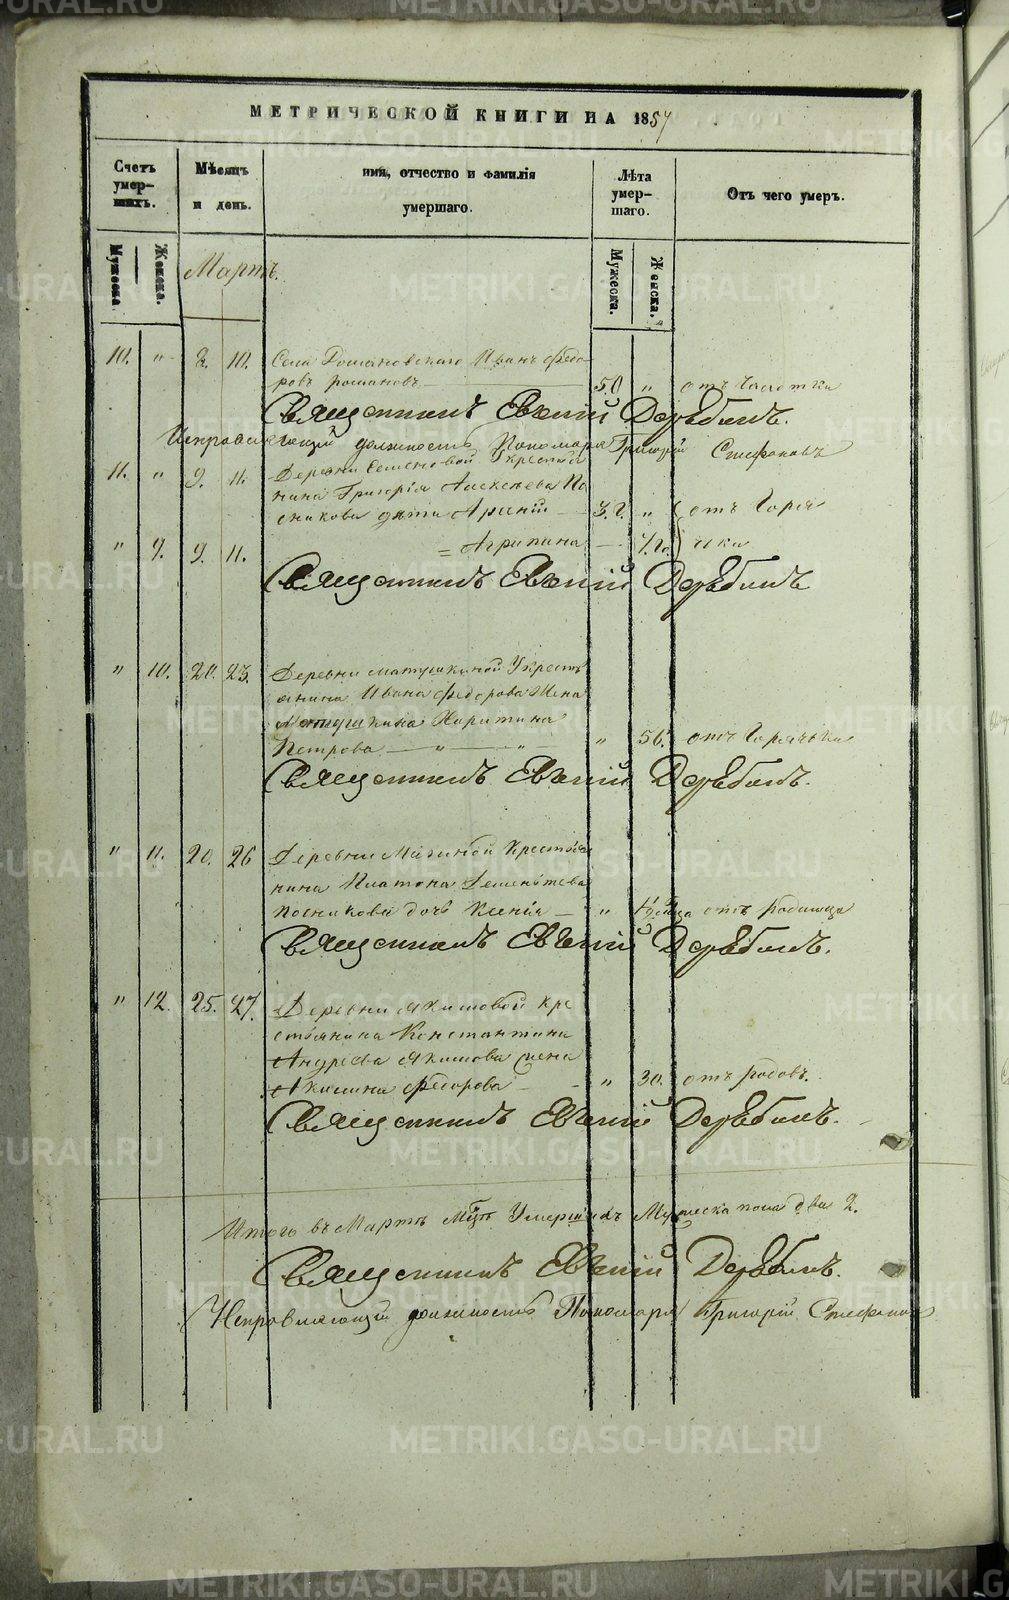 МЕТРИЧЕСКОЙ КНИГИ НА 1857
Счетъ умер-шихъ.
Мѣсяцъ и день.
имя, отчество и фамилія умершаго.
Лѣта умер-шаго.
Отъ чего умеръ.
Мужеска.
Женска.
Мартъ.
Мужеска.
Женска.
10. " 8. 10. Села Романовскаго Иванъ Федо-
ровъ Романовъ 50 " отъ чахотки
Священникъ Евгеній Дерябинъ.
Исправляющій должность Пономаря Григорій Стефановъ
11. " 9. 11. Деревни Семеновой Крестья
нина Григорія Алексѣева По
сникова дѣти Арсеній 3.г. " отъ Горя
" 9. 9. 11. = Агрипина чки
Священникъ Евгеній Дерябинъ
" 10. 20. 23. Деревни Матушкиной Крестъ
янина Ивана Федорова Жена
Матушкина Харитина
Петрова " " " 56. отъ Горячьки
Священникъ Евгеній Дерябинъ.
" 11. 20. 26 Деревни Крестья
нина Платона Дементьева
Посникова дочь Ксенія " отъ Родимца
Священникъ Евгеній Дерябинъ.
" 12. 25. 27. Деревни Якшовой Кре
стьянина Константина
Андреева Жена
Акилина Федорова " 30. отъ родовъ.
Священникъ Евгеній Дерябинъ.
Итого въ Мартѣ Мцѣ Умершихъ Мужеска пола два 2.
Священникъ Евгеній Дерябинъ.
Исправляющій должность Пономаря Григорій Стефановъ
METRIKI.GASO-URAL.RU